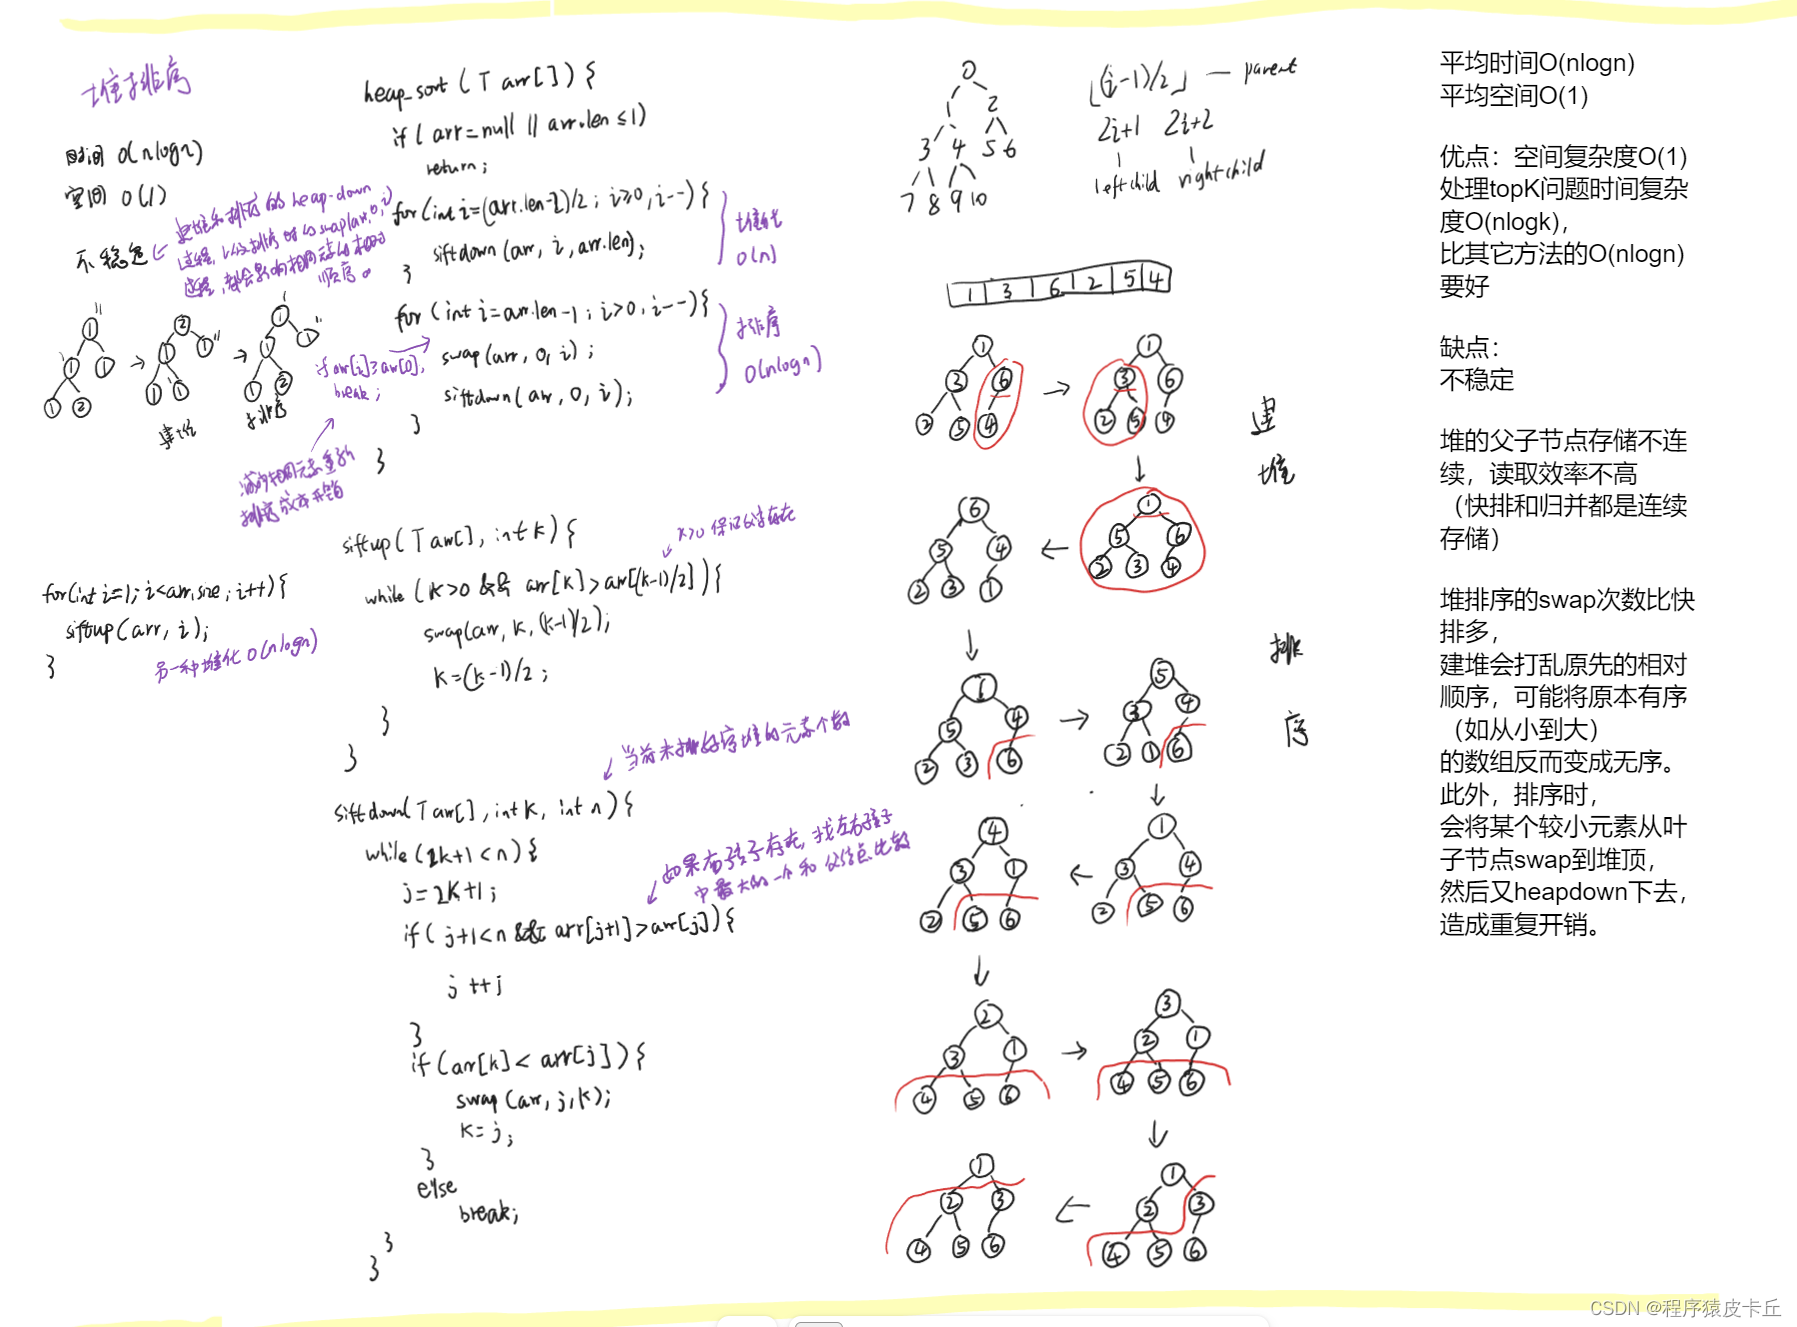 堆排序
时间 O(nlogn)
空间 O(1)
不稳定
建堆和排序的heap-down
过程,以及排序时的swap(arr,0,i)
过程,都会影响相同元素的相对
顺序。
建堆
排序
heap_sort (T arr[]) {
if ( arr=null || arr.len ≤ 1)
return;
for(int i=(arr.len-2)/2; i≥0, i--) {
siftdown (arr, i, arr.len);
}
堆化
O(n)
for (int i=arr.len-1; i>0, i--) {
if arr[i]≥arr[0],
break;
swap(arr, 0, i);
siftdown(arr, 0, i);
}
}
排序
O(nlogn)
减少相同元素重新
排序成本开销
for(int i=1; i<arr.size; i++) {
siftup(arr, i);
}
另一种堆化 O(nlogn)
siftup( T arr[], int k) {
k>0 保证父亲存在
while (k>0 && arr[k]>arr[(k-1)/2]) {
swap(arr, k, (k-1)/2);
k=(k-1)/2;
}
}
当前未排好序堆的元素个数
siftdown(T arr[], int k, int n) {
while (2k+1<n) {
j=2k+1;
如果右孩子存在,找左右孩子
中最大的一个和父结点比较
if( j+1<n && arr[j+1]>arr[j]) {
j++;
}
if (arr[k]< arr[j]) {
swap (arr, j, k);
k=j;
}
else
break;
}
}
0
1 2
3 4 5 6
7 8 9 10
⌊(i-1)/2⌋ — parent
2i+1 2i+2
leftchild rightchild
1 3 6 2 5 4
① ①
③ ⑥ ③ ⑥
② ⑤ ④ ② ⑤ ④
建
堆
⑥ ①
⑤ ④ ⑤ ⑥
② ③ ① ② ③ ④
排
序
① ⑤
⑤ ④ ③ ④
② ③ ⑥ ② ① ⑥
④ ①
③ ① ③ ④
② ⑤ ⑥ ② ⑤ ⑥
② ③
③ ① ② ①
④ ⑤ ⑥ ④ ⑤ ⑥
① ①
② ③ ② ③
④ ⑤ ⑥ ④ ⑤ ⑥
平均时间O(nlogn)
平均空间O(1)
优点：空间复杂度O(1)
处理topK问题时间复杂
度O(nlogk)，
比其它方法的O(nlogn)
要好
缺点：
不稳定
堆的父子节点存储不连
续，读取效率不高
（快排和归并都是连续
存储）
堆排序的swap次数比快
排多，
建堆会打乱原先的相对
顺序，可能将原本有序
（如从小到大）
的数组反而变成无序。
此外，排序时，
会将某个较小元素从叶
子节点swap到堆顶，
然后又heapdown下去，
造成重复开销。
CSDN @程序猿皮卡丘